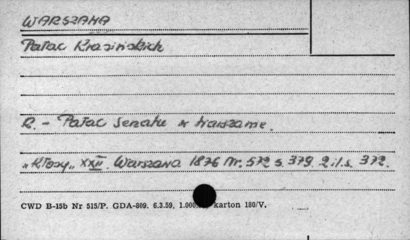 WARSZAWA
Pałac Krasińskich
R. - Pałac Senatu w Warszawie.
"Kłosy" XXII. Warszawa 1876 Nr. 572 s. 379. 2 il. s. 372.
CWD B-15b Nr 515/P. GDA-809. 6.3.59. 1.000 karton 180/V.